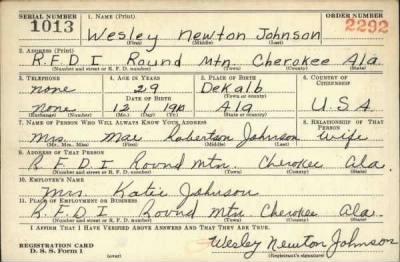 SERIAL NUMBER 1. NAME (Print) ORDER NUMBER
1013 Wesley Newton Johnson 2292
(First) (Middle) (Last)
2. ADDRESS (Print)
R.F.D. 1 Round Mtn. Cherokee Ala.
(Number and street or R. F. D. number) (Town) (County) (State)
3. TELEPHONE 4. AGE IN YEARS 5. PLACE OF BIRTH 6. COUNTRY OF CITIZENSHIP
none 29 DeKalb
DATE OF BIRTH (Town or county)
none 12 1 1911 Ala U.S.A
(Mo.) (Day) (Yr.) (State or country)
7. NAME OF PERSON WHO WILL ALWAYS KNOW YOUR ADDRESS 8. RELATIONSHIP OF THAT PERSON
Mrs. Mae Robertson Johnson wife
(Mr., Mrs., Miss) (First) (Middle) (Last)
9. ADDRESS OF THAT PERSON
R.F.D. 1 Round Mtn. Cherokee Ala.
(Number and street or R. F. D. number) (Town) (County) (State)
10. EMPLOYER'S NAME
Mrs. Katie Johnson
11. PLACE OF EMPLOYMENT OR BUSINESS
R.F.D. 1 Round Mtn. Cherokee Ala.
(Number and street or R. F. D. number) (Town) (County) (State)
I AFFIRM THAT I HAVE VERIFIED ABOVE ANSWERS AND THAT THEY ARE TRUE.
REGISTRATION CARD
D. S. S. Form 1 Wesley Newton Johnson
(Registrant's signature)